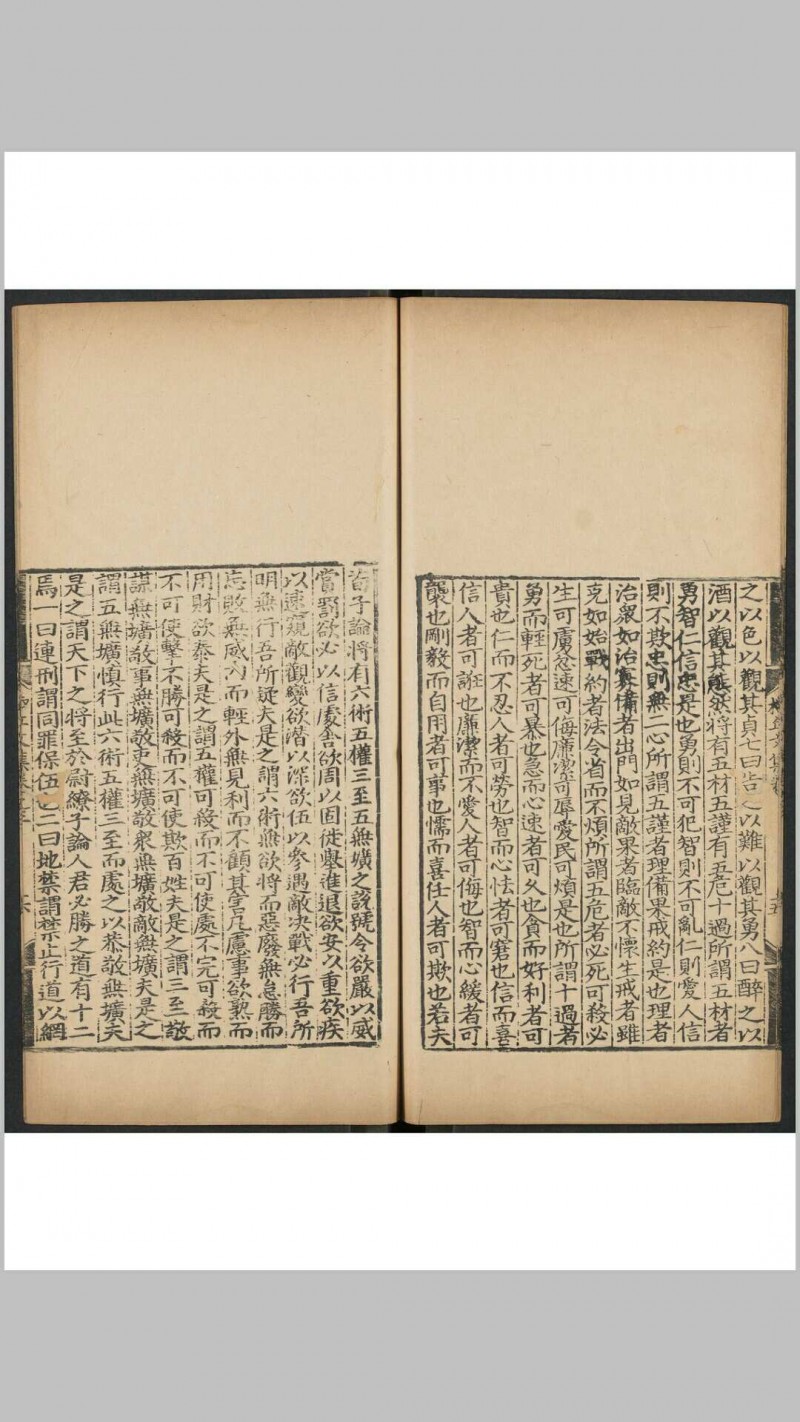 之以色以觀其貞七曰告之以難以觀其勇八曰醉之以
酒以觀其態然將有五材五謹有五危十過所謂五材者
勇智仁信忠是也勇則不可犯智則不可亂仁則愛人信
則不欺忠則無二心所謂五謹者理備果戒約是也理者
治衆如治寡備者出門如見敵果者臨敵不懷生戒者雖
克如始戰約者法令省而不煩所謂五危者必死可殺必
生可虜忿速可侮廉潔可辱愛民可煩是也所謂十過者
勇而輕死者可暴也急而心速者可久也貪而好利者可
貴也仁而不忍人者可勞也智而心怯者可窘也信而喜
信人者可誑也廉潔而不愛人者可侮也智而心緩者可
襲也剛毅而自用者可事也懦而喜任人者可欺也若夫
荀子論將有六術五權三至五無壙之說號令欲嚴以威
嘗罰欲必以信處舍欲周以固徙舉進退欲安以重欲疾
以速窺敵觀變欲潜以深欲伍以參遇敵决戰必行吾所
明無行吾所疑夫是之謂六術無欲將而惡廢無急勝而
忘敗無威內而輕外無見利而不顧其害凡慮事欲熟而
用財欲泰夫是之謂五權可殺而不可使處不完可殺而
不可使擊不勝可殺而不可使欺百姓夫是之謂三至敬
謀無壙敬事無壙敬吏無壙敬衆無壙敬敵無壙夫是之
謂五無壙慎行此六術五權三至而處之以恭敬無壙夫
是之謂天下之將至於尉繚子論人君必勝之道有十二
焉一曰連刑謂同罪保伍也二曰地禁謂禁止行道以網